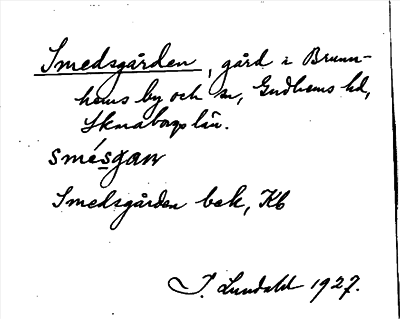 Smedsgården, gård i Brunn-
hems by och sn, Gudhems hd,
Skaraborgs län.
smésgan
Smedsgården bek, Kb
J. Lundahl 1927.